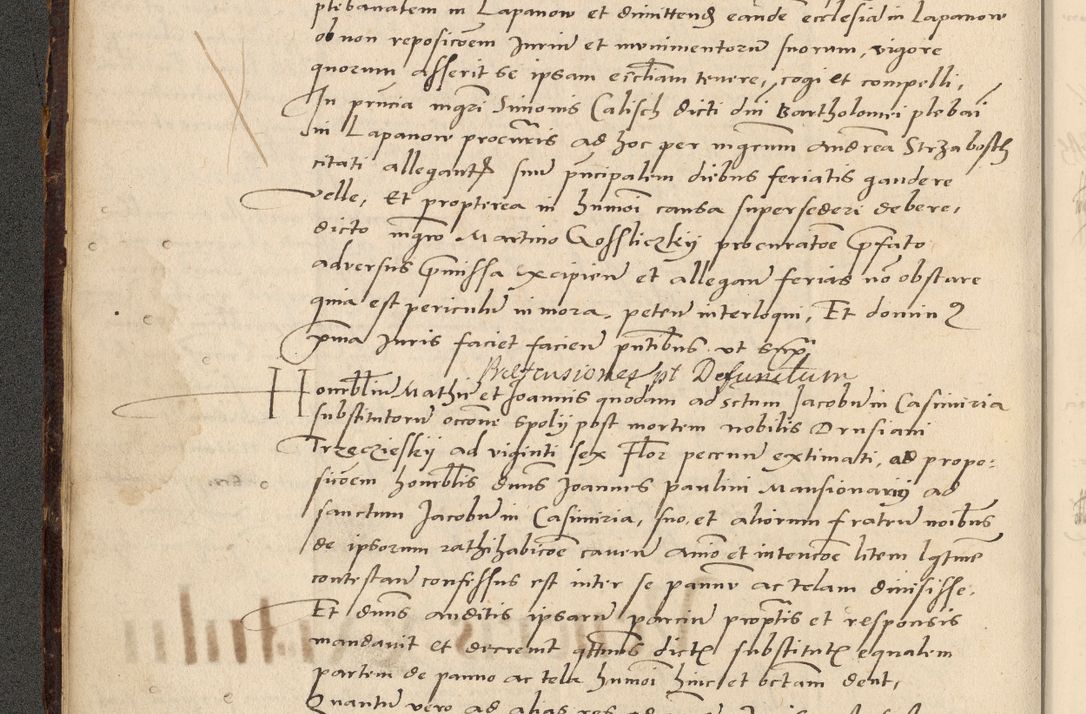 plebanatem in Lapanow et dimittend eande ecclesia in Lapanow
ob non reposicoem Juriu et munimentoru suorum, vigore
quorum asserit se ipsam eccliam tenere, cogi et compelli,
In pñcia mgri Simonis Calisch dicti dni Bartholomei plebai
in Lapanow procuris ad hoc per mgrum Andrea Strzabosch
citati allegant suu pncipalem diebus feriatis gaudere
velle, Et propterea in humoi causa supersederi debere,
dicto mgro Martino Gossliczkij procuratoe pfato
adversus pmissa excipien et allegan ferias no obstare
quia est periculu in mora, peten interloqui, Et dominus
pma Juris faciet facien pntibus ut supra
pt Defunctum
Honorbiliu Mathie et Joannis quodam ad sctum Jacobu in Casimiria
substitutoru occoe spolij post mortem nobilis Drusiani
Trzeczieskij ad viginti sex Flor pecunie extimati, ad propo=
sicoem honorblis dnus Joannes paulini Mansionarius ad
sanctum Jacobu in Casimiria, suo et aliorum fratru noibus
de ipsorum rathihabicoe caven amo et intencoe litem lgtme
contestan confessus est inter se pannu ac telam divisisse.
Et dnus auditis ipsaru partiu propotis et responsis
mandavit et decrevit qttnus dicte substitute equalem
partem de panno ac tella humoi hinc et octam dent,
Quantu vero ad alias res